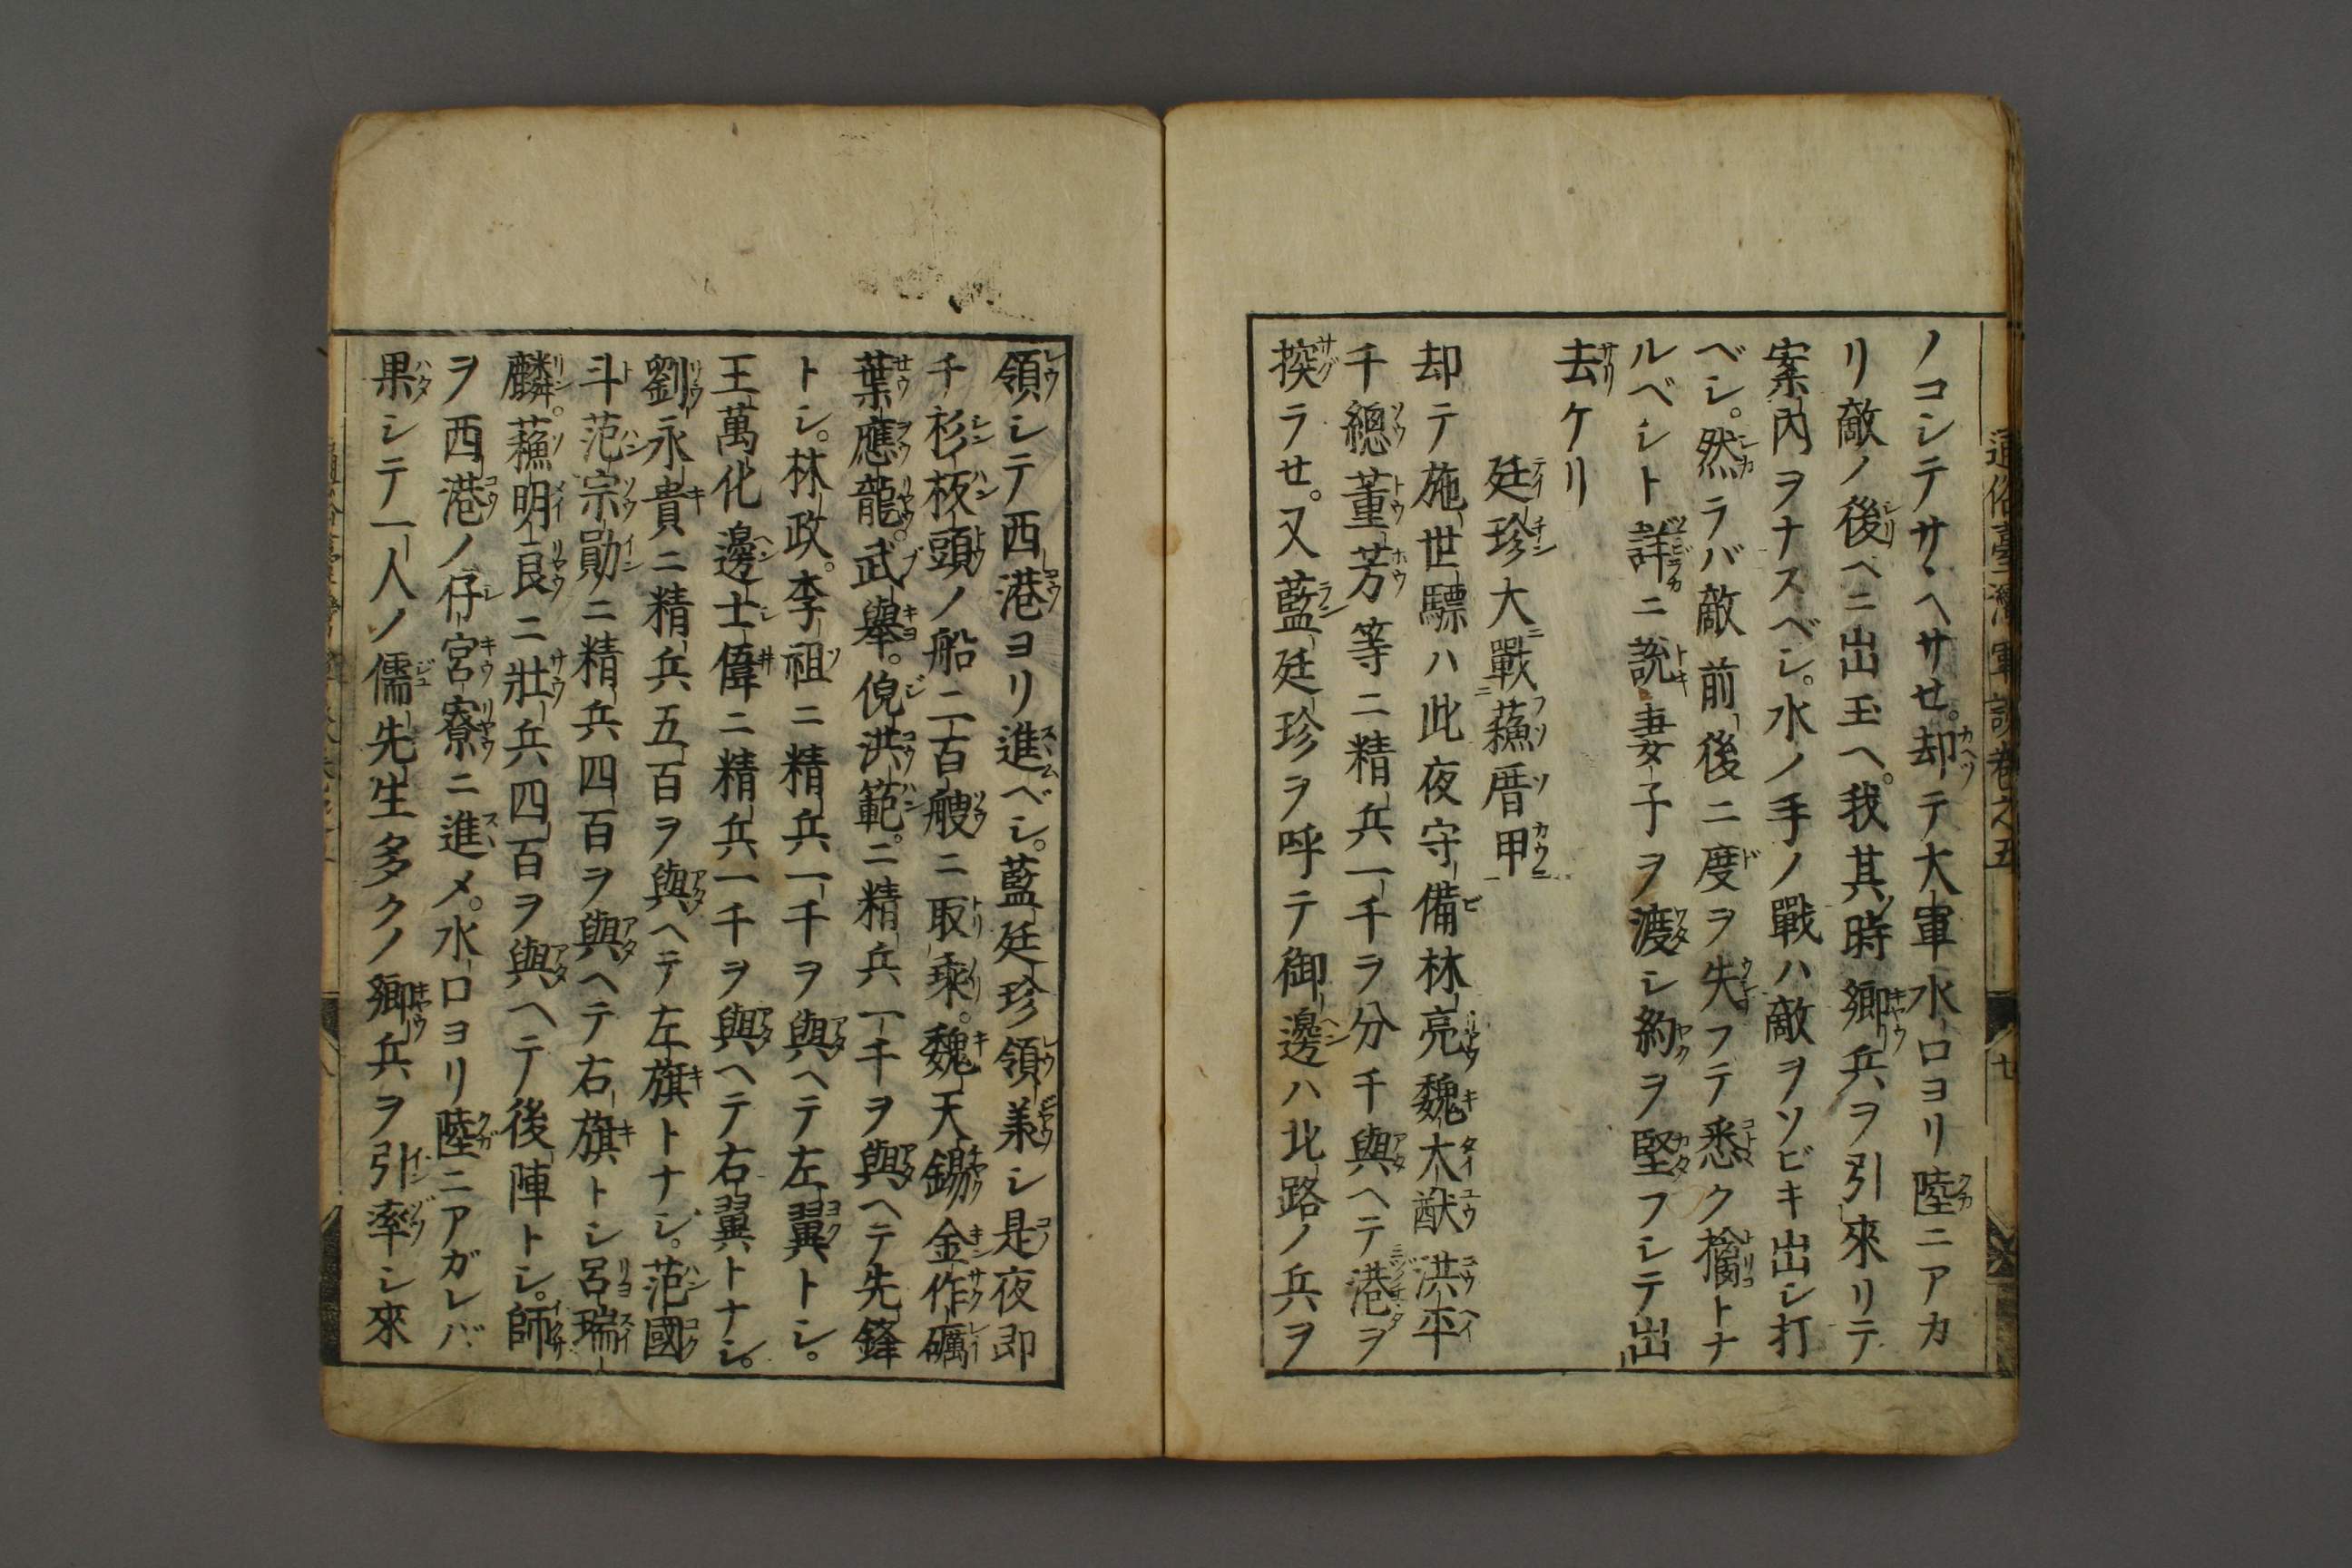 ノコシテサヽヘサせ。却テ大軍水口ヨリ陸ニアカ
リ敵ノ後ヘニ出玉ヘ。我其時郷兵ヲ引來リテ
案内ヲナスベシ。水ノ手ノ戰ハ敵ヲソビキ出シ打
ベシ。然ラバ敵前後ニ度ヲ失フテ悉ク擒トナ
ルベシト詳ニ説妻子ヲ渡シ約ヲ堅フシテ出
去ケリ
廷珍大戰蘓厝甲
却テ施世驃ハ此夜守備林亮魏大猷洪平
千總董芳等ニ精兵一千ヲ分千與ヘテ港ヲ
探ラせ。又藍廷珍ヲ呼テ御邊ハ北路ノ兵ヲ
通俗臺灣軍談巻之五
領シテ西港ヨリ進ベシ。藍廷珍領義シ是夜即
千杉板頭ノ船二百艘ニ取乘。魏天錫金作礪
葉應龍。武舉。倪洪範。ニ精兵一千ヲ與ヘテ先鋒
トシ。林政。李祖ニ精兵一千ヲ與ヘテ左翼トシ。
王萬化邊士偉ニ精兵一千ヲ與ヘテ右翼トナシ。
劉永貴ニ精兵五百ヲ與ヘテ左旗トナシ。范國
斗范宗勛ニ精兵四百ヲ與ヘテ右旗トシ呂瑞
麟。蘓明良ニ壯兵四百ヲ與ヘテ後陣トシ。師
ヲ西港ノ仔宮寮ニ進メ。水口ヨリ陸ニアガレバ
果シテ一人ノ儒先生多クノ郷兵ヲ引率シ來